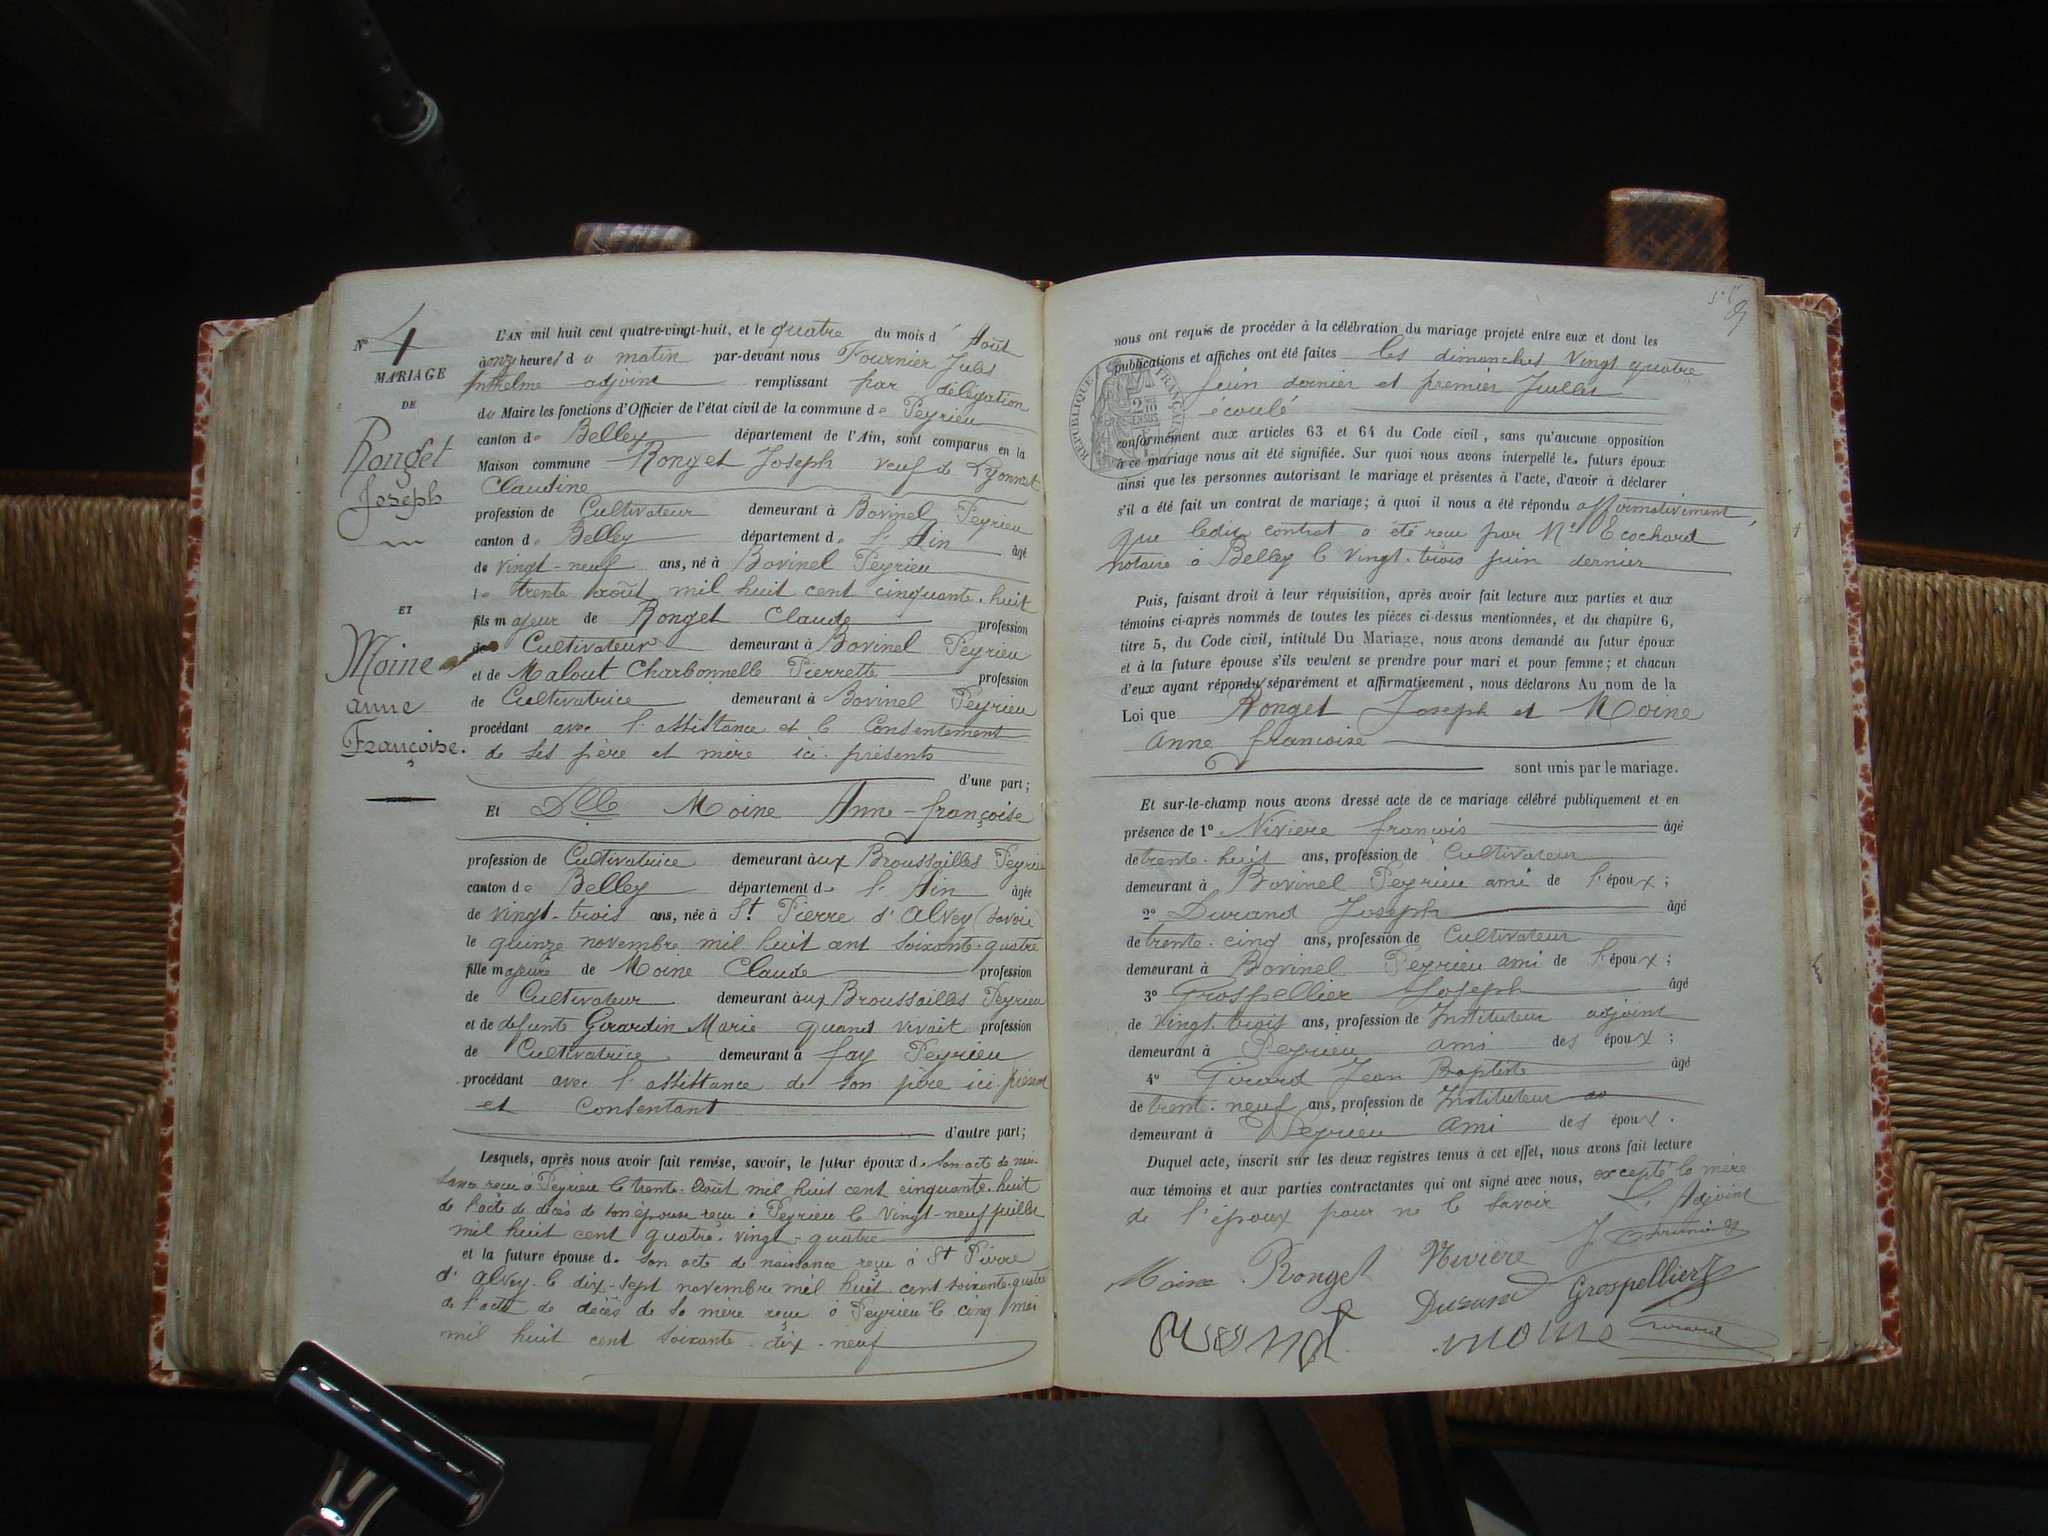 N° 4
MARIAGE
DE
Ronget
Joseph
ET
Moine
anne
Françoise.
L'AN mil huit cent quatre-vingt-huit, et le quatre du mois d' Août
à onze heures du matin par-devant nous Fournier Jules
Anthelme adjoint remplissant par délégation
du Maire les fonctions d'Officier de l'état civil de la commune de Peyrieu
canton de Belley département de l'Ain, sont comparus en la
Maison commune Ronget Joseph veuf de Lyonnet
Claudine
profession de Cultivateur demeurant à Bovinel Peyrieu
canton de Belley département de l'Ain âgé
de vingt-neuf ans, né à Bovinel Peyrieu
le trente août mil huit cent cinquante-huit
fils majeur de Ronget Claude profession
de Cultivateur demeurant à Bovinel Peyrieu
et de Malout Charbonnelle Pierrette profession
de Cultivatrice demeurant à Bovinel Peyrieu
procédant avec l'assistance et le Consentement
de ses père et mère ici présents
d'une part;
Et Dlle Moine Anne-françoise
profession de Cultivatrice demeurant aux Broussailles Peyrieu
canton de Belley département de l'Ain âgée
de vingt-trois ans, née à St Pierre d'Alvey (Savoie)
le quinze novembre mil huit cent soixante-quatre
fille majeure de Moine Claude profession
de Cultivateur demeurant aux Broussailles Peyrieu
et de defunte Girardin Marie quand vivait profession
de Cultivatrice demeurant à fay Peyrieu
procédant avec l'assistance de son père ici présent
et Consentant
d'autre part;
Lesquels, après nous avoir fait remise, savoir, le futur époux de son acte de nais-
sance reçu à Peyrieu le trente-Août mil huit cent cinquante-huit
de l'acte de décès de son épouse reçu à Peyrieu le vingt-neuf juillet
mil huit cent quatre-vingt-quatre
et la future épouse de son acte de naissance reçu à St Pierre
d'Alvey le dix-sept novembre mil huit cent soixante-quatre
de l'acte de décès de sa mère reçu à Peyrieu le cinq mai
mil huit cent soixante-dix-neuf
nous ont requis de procéder à la célébration du mariage projeté entre eux et dont les
publications et affiches ont été faites les dimanches vingt quatre
Juin dernier et premier Juillet
écoulé
RÉPUBLIQUE FRANÇAISE
conformément aux articles 63 et 64 du Code civil, sans qu'aucune opposition
à ce mariage nous ait été signifiée. Sur quoi nous avons interpellé les futurs époux
ainsi que les personnes autorisant le mariage et présentes à l'acte, d'avoir à déclarer
s'il a été fait un contrat de mariage; à quoi il nous a été répondu affirmativement,
que ledit contrat a été reçu par Me Ecochard
notaire à Belley le vingt-trois juin dernier
Puis, faisant droit à leur réquisition, après avoir fait lecture aux parties et aux
témoins ci-après nommés de toutes les pièces ci-dessus mentionnées, et du chapitre 6,
titre 5, du Code civil, intitulé Du Mariage, nous avons demandé au futur époux
et à la future épouse s'ils veulent se prendre pour mari et pour femme; et chacun
d'eux ayant répondu séparément et affirmativement, nous déclarons Au nom de la
Loi que Ronget Joseph et Moine
Anne françoise
sont unis par le mariage.
Et sur-le-champ nous avons dressé acte de ce mariage célébré publiquement et en
présence de 1° Nivière françois âgé
de trente-huit ans, profession de Cultivateur
demeurant à Bovinel Peyrieu ami de l'époux;
2° Durand Joseph âgé
de trente-cinq ans, profession de Cultivateur
demeurant à Bovinel Peyrieu ami de l'époux;
3° Grospellier Joseph âgé
de vingt-trois ans, profession de Instituteur adjoint
demeurant à Peyrieu ami des époux;
4° Girard Jean Baptiste âgé
de trente-neuf ans, profession de Instituteur
demeurant à Peyrieu ami des époux.
Duquel acte, inscrit sur les deux registres tenus à cet effet, nous avons fait lecture
aux témoins et aux parties contractantes qui ont signé avec nous, excepté la mère
de l'époux pour ne le savoir L'Adjoint
Moine Ronget Nivière J. Fournier
Durand Grospellier
Girard